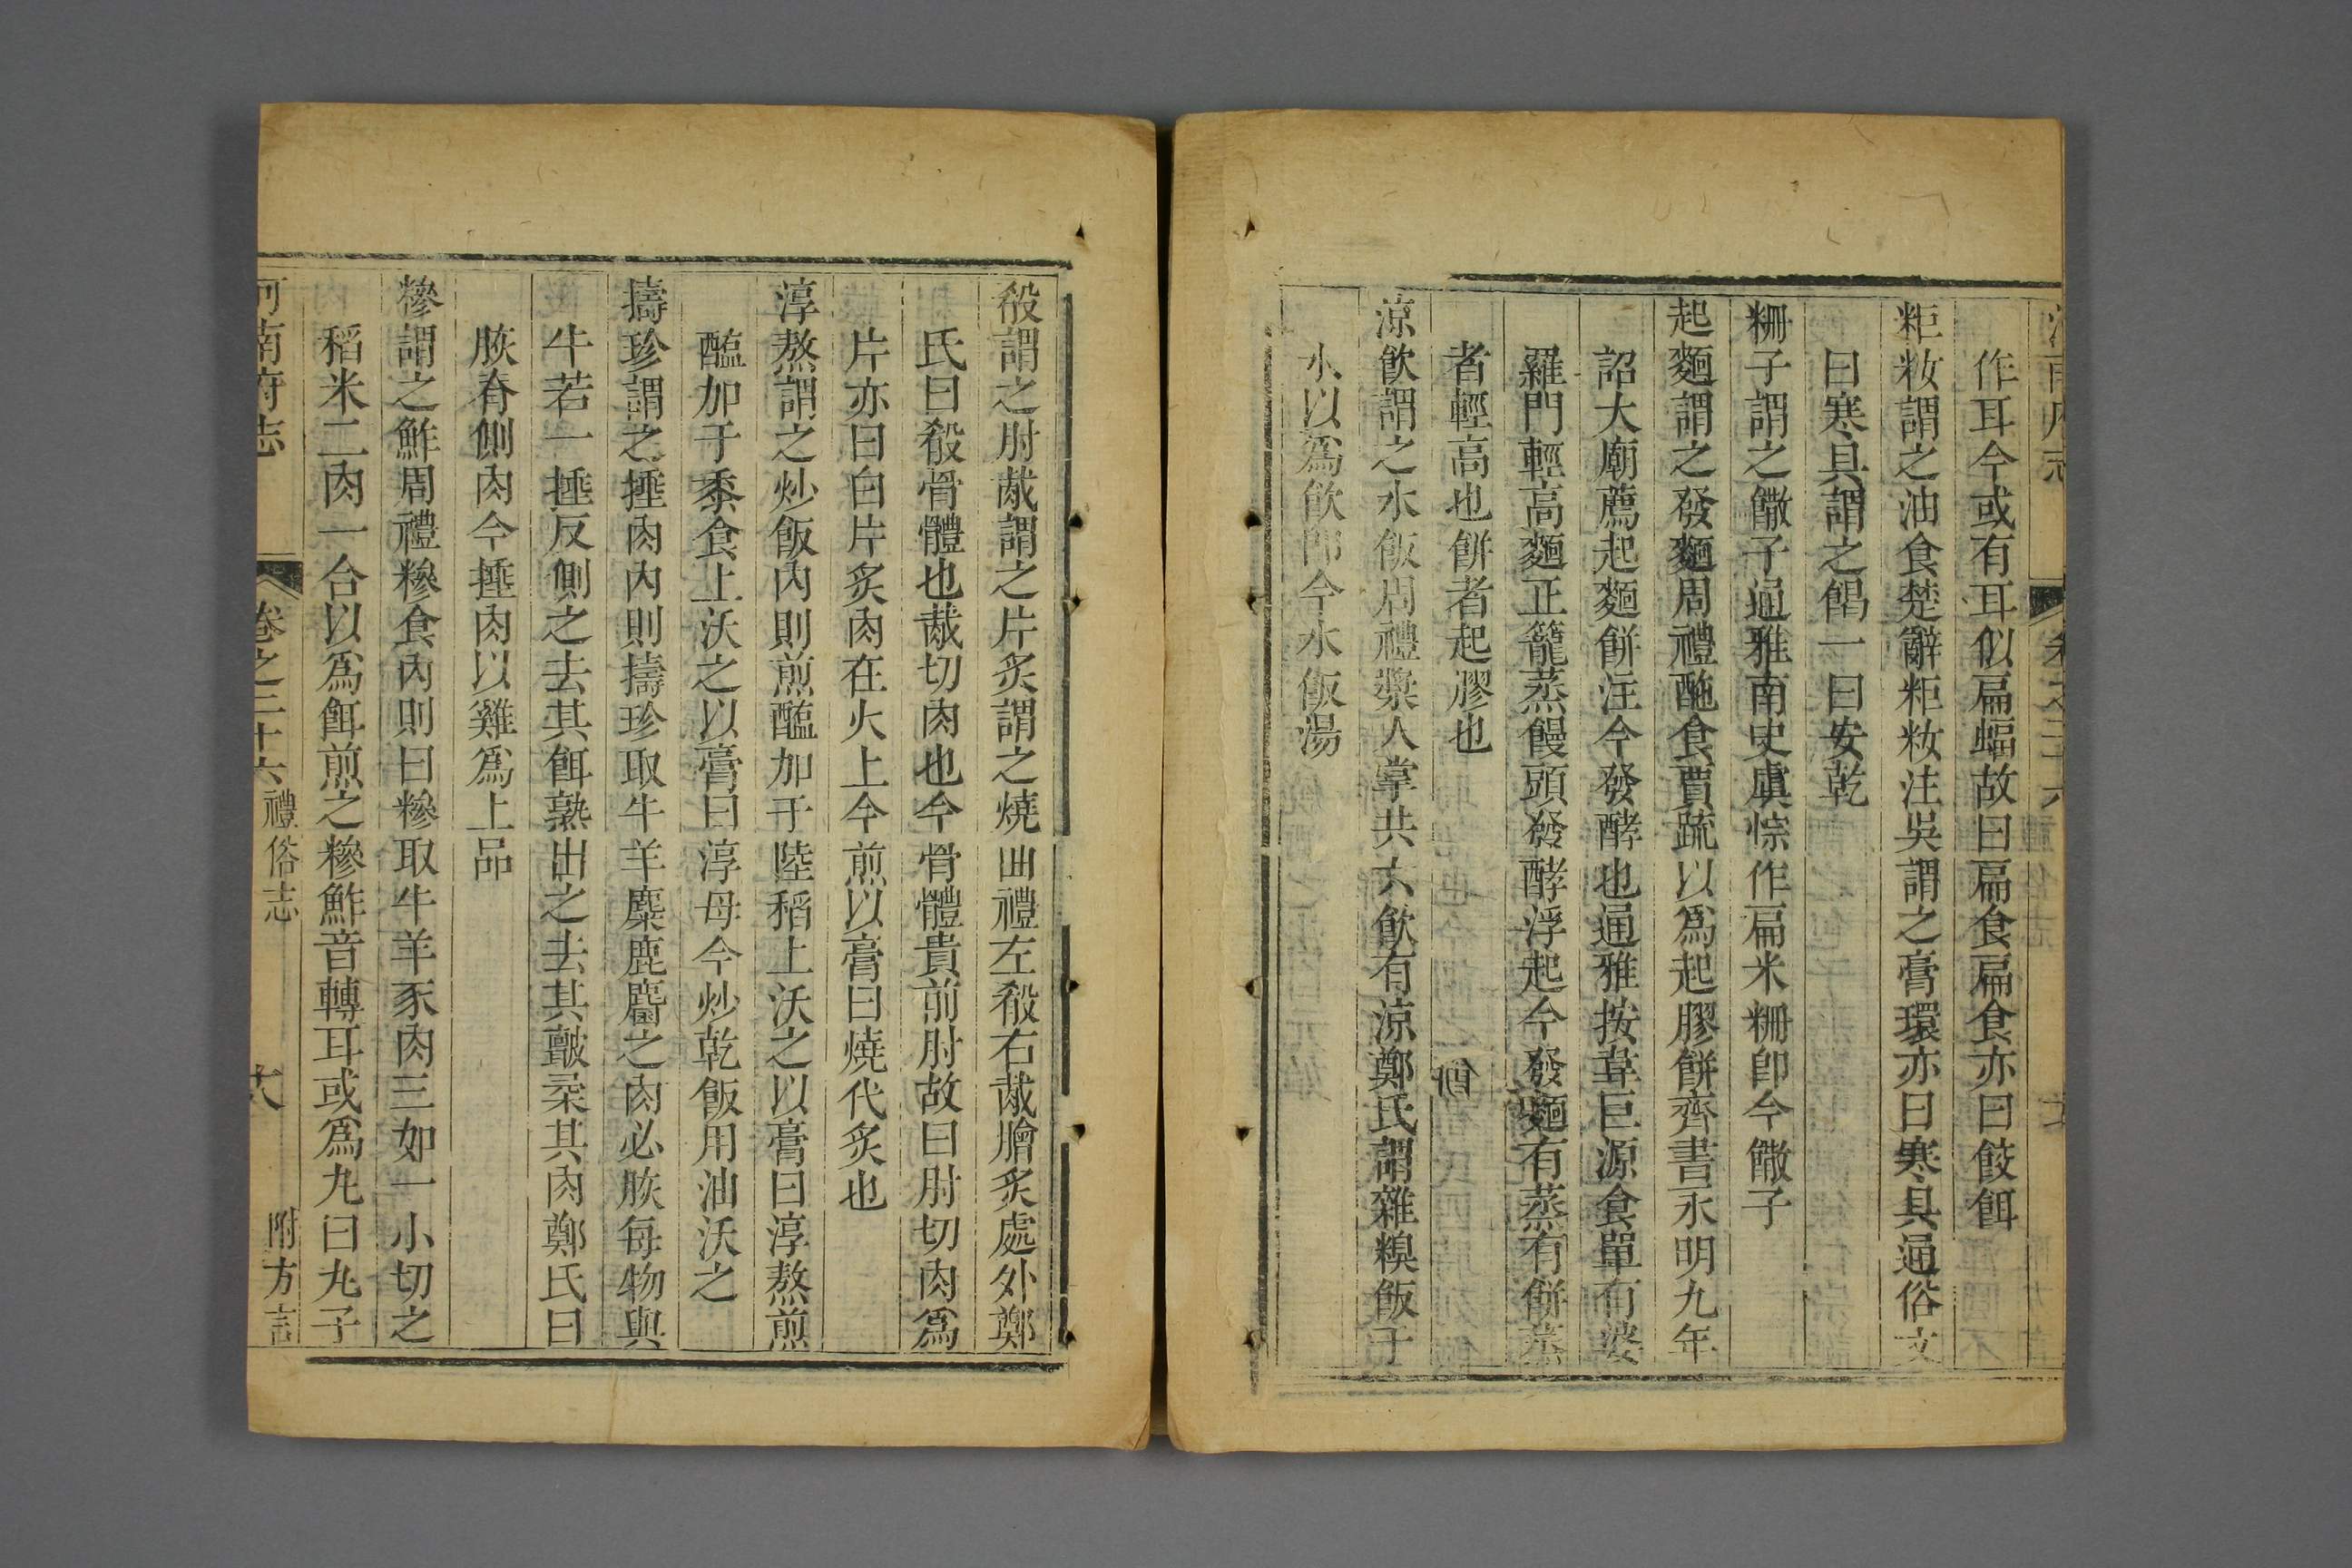 作耳今或有耳似扁蝠故曰扁食扁食亦曰餃餌
粔籹謂之油食楚辭粔籹注吳謂之膏環亦曰寒具通俗文
曰寒具謂之餲一曰安乾
粣子謂之饊子通雅南史虞悰作扁米粣卽今饊子
起麵謂之發麵周禮酏食賈疏以爲起膠餅齊書永明九年
詔大廟薦起麵餅注今發酵也通雅按韋巨源食單有婆
羅門輕高麵正籠蒸饅頭發酵浮起今發麵有蒸有餅蒸
者輕高也餅者起膠也
涼飲謂之水飯周禮漿人掌共六飲有涼鄭氏謂雜糗飯于
水以爲飲卽今水飯湯
殽謂之肘胾謂之片炙謂之燒曲禮左殽右胾膾炙處外鄭
氏曰殽骨體也胾切肉也今骨體貴前肘故曰肘切肉爲
片亦曰白片炙肉在火上今煎以膏曰燒代炙也
淳熬謂之炒飯內則煎醢加于陸稻上沃之以膏曰淳熬煎
醢加于黍食上沃之以膏曰淳母今炒乾飯用油沃之
擣珍謂之捶肉內則擣珍取牛羊麋鹿麕之肉必脄每物與
牛若一捶反側之去其餌熟出之去其皽柔其肉鄭氏曰
脄脊側肉今捶肉以雞爲上品
糝謂之鮓周禮糝食內則曰糝取牛羊豕肉三如一小切之
稻米二肉一合以爲餌煎之糝鮓音轉耳或爲丸曰丸子
河南府志
卷之三十六禮俗志
十八
附方言